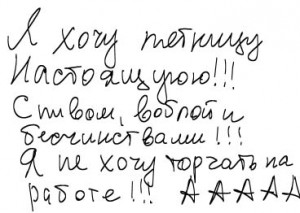 Я хочу пятницу
Настоящую!!!
С пивом, воблой и
бесчинствами!!!
Я не хочу торчать на
работе!!! ААААА